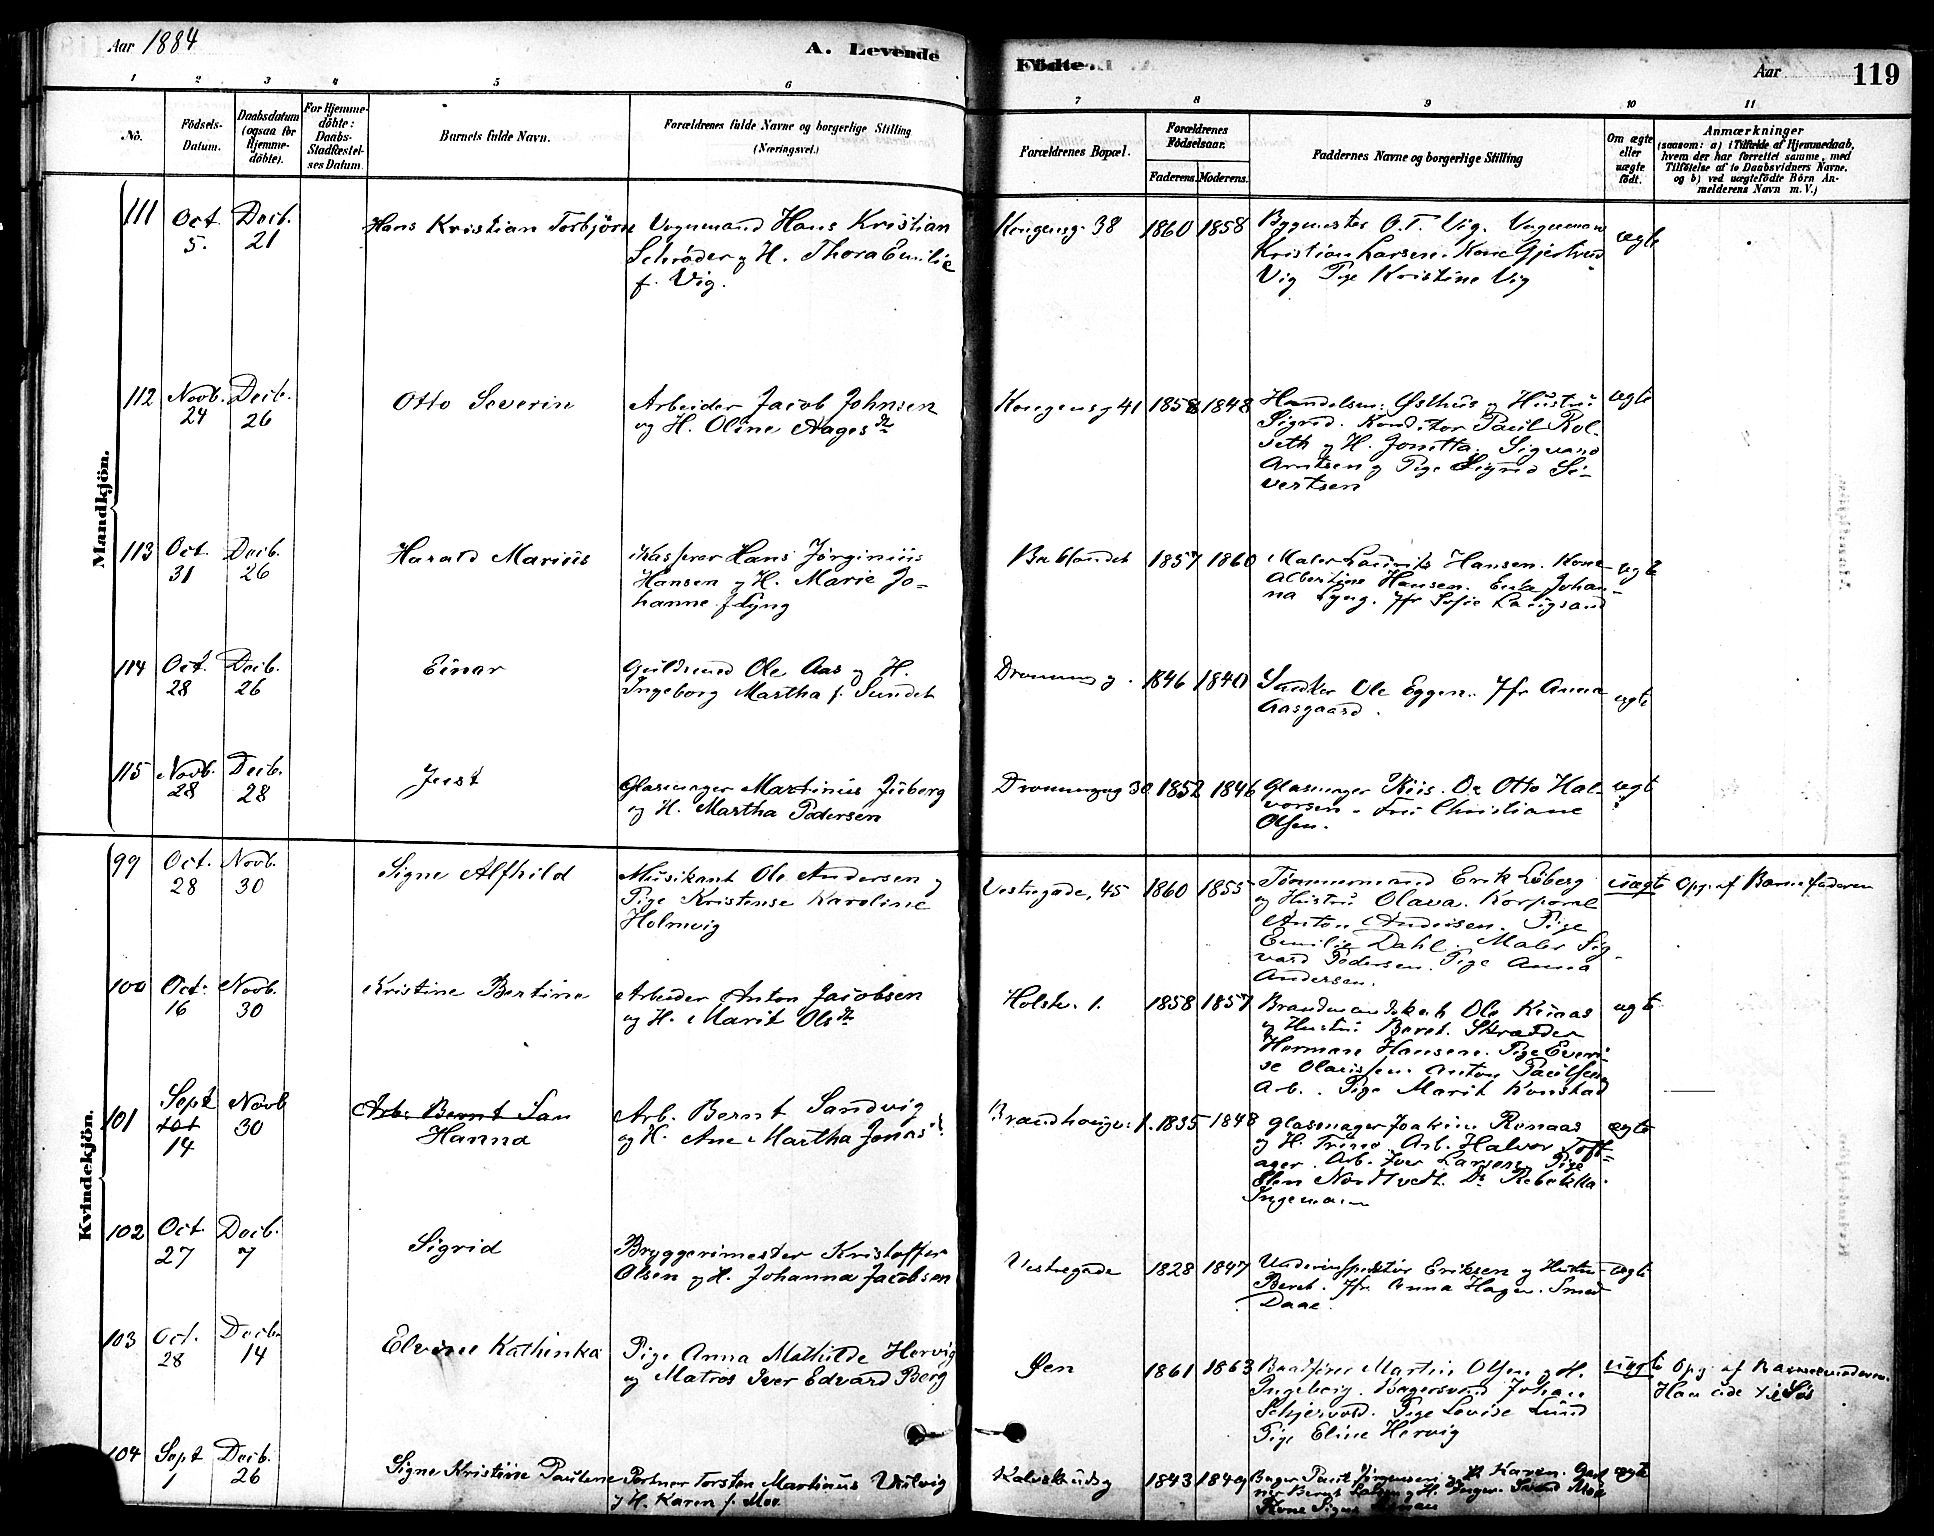 Aar 1884
A. Levende
Födte
Aar 119
1 2 3 4 5 6 7 8 9 10 11
No.
Födsels-Datum.
Daabsdatum (ogsaa for Hjemme-döbte).
For Hjemme-döbte: Daabs-Stadfæstel-ses Datum.
Barnets fulde Navn.
Forældrenes fulde Navne og borgerlige Stilling (Næringsvei.)
Forældrenes Bopæl.
Forældrenes Födselsaar.
Faderens. Moderens.
Faddernes Navne og borgerlige Stilling
Om ægte eller uægte födt.
Anmærkninger
(saasom: a) i Tilfælde af Hjemmedaab, hvem der har forrettet samme, med Tilföielse af to Daabsvidners Navne, og b) ved uægtefödte Börn Anmelderens Navn m. V.)
Mandkjön.
111 Oct. 5. Decb. 21 Hans Kristian Torbjörn
Vognmand Hans Kristian
Schrøder og H. Thora Emilie
f. Vig.
Kongensg. 38 1860 1858
Bygmester O. T. Vig. Vognmand
Kristian Larsen. Kone Gjertrud
Vig Pige Kristine Vig
ægte
112 Novb. 24 Decb. 26 Otto Severin
Arbeider Jacob Johnsen
og H. Oline Aagesdr
Kongensg 41 1858 1848
Handelsm. Østhus og Hustru
Sigrid. Konditor Paul Rol-
seth og H. Jonetta. Sigvard
Arntsen og Pige Sigrid Si-
vertsen
ægte
113 Oct. 31 Decb. 26 Harald Marius
Kasserer Hans Jørginius
Hansen og H. Marie Jo-
hanne f. Lyng
Baklandet 1857 1860
Maler Laurits Hansen. Kone
Albertine Hansen. Enke Johan-
na Lyng. Jfr Sofie Langsand
ægte
114 Oct. 28 Decb. 26 Einar
Guldsmed Ole Aas og H.
Ingeborg Martha f. Sundet
Dronningg. 1846 1840
Snedker Ole Eggen. Jfr Anna
Aasgaard.
ægte
115 Novb. 28 Decb. 28 Just
Glasmager Martinus Juberg
og H. Martha Pedersen
Dronningsg 30 1852 1846
Glasmager Kiis. Do Otto Hal-
vorsen. Fru Christiane
Olsen.
ægt
Kvindekjön.
99 Oct. 28 Novb. 30 Signe Alfhild
Musikant Ole Andersen og
Pige Kristense Karoline
Holmvig
Vestregade, 45 1860 1855
Tømmermand Erik Løberg
og Hustru Olava. Korporal
Anton Andersen. Pige
Emilie Dahl. Maler Sig-
vard Pedersen. Pige Anna
Andersen.
uægte Opg. af Barnefaderen
100 Oct. 16 Novb. 30 Kristine Bertine
Arbeider Anton Jacobsen
og H. Marit Olsdr
Holstv. 1. 1858 1857
Ole
og Hustru Beret. Skrædder
Herman Hansen. Pige
Anton Paulsen
Arb. Pige Marit Konstad
ægt
101 Sept 14 Novb 30 Arb. Bernt San
Hanna
Arb. Bernt Sandvig
og H. Ane Martha Jonasd.
1. 1835 1848
Glasmager Joakim Rønaas
og H. Trine. Arb. Halvor Toft-
ager. Arb. Iver Larsen. Pige
Elen Nordtvedt. Do Rebekka
Ingemann
ægte
102 Oct. 27 Decb. 7 Sigrid
Bryggerimester Kristoffer
Olsen og H. Johanna Jacobsen
Vestregade 1828 1847
Underinspektør Eriksen og Hustru
Beret. Jfr. Anna Hagen. Smed
Daae.
ægte
103 Oct. 28 Decb. 14 Elvine Kathinka
Pige Anna Mathilde Hervig
og Matros Iver Edvard Berg
Øen 1861 1863
Baadfører Martin Olsen og H.
Ingeborg. Bagersvend Johan
Schjervold. Pige Lovise Lund
Pige Eline Hervig
uægte Opg. af Barnemoderen.
Han ude til Søs
104 Sept 1 Decb. 26 Signe Kristine Pauline
Portner Torsten Martinus Ulvig
og H. Karen f. Moe
Kalvskindsg 1843 1849
Bager Paul Jørgensen og H. Karen. Gart
ner Bernt og H. Inger. Svend Moe
Kone Signe
ægte